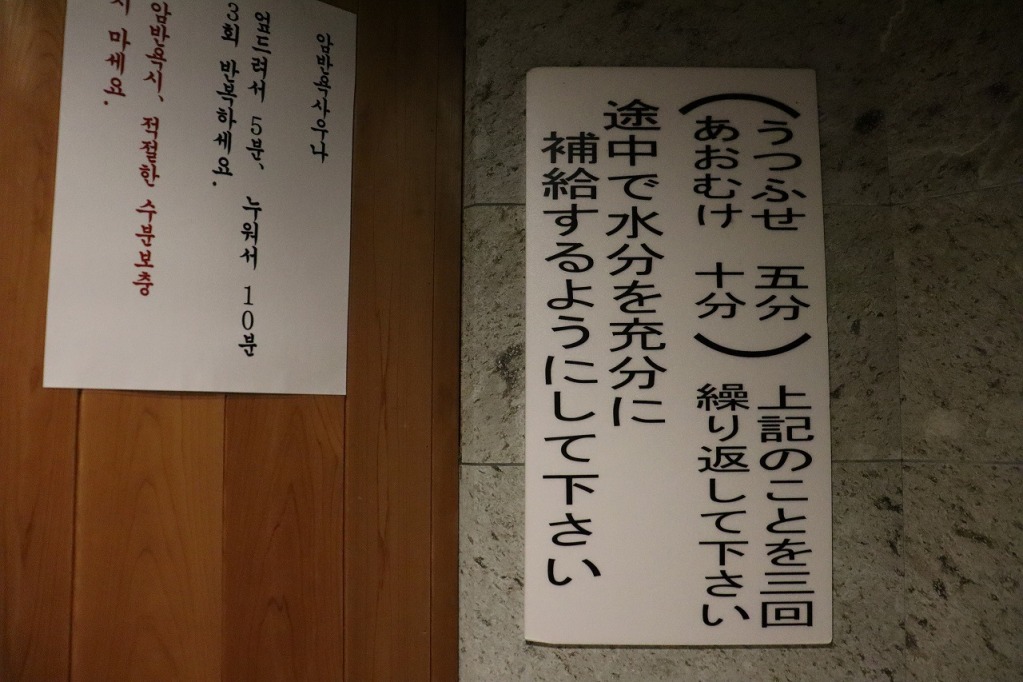 （うつふせ 五分
あおむけ 十分）
上記のことを三回
繰り返して下さい
途中で水分を充分に
補給するようにして下さい
암반욕사우나
엎드려서 5분, 누워서 10분
3회 반복하세요.
암반욕시, 적절한 수분보충
마세요.